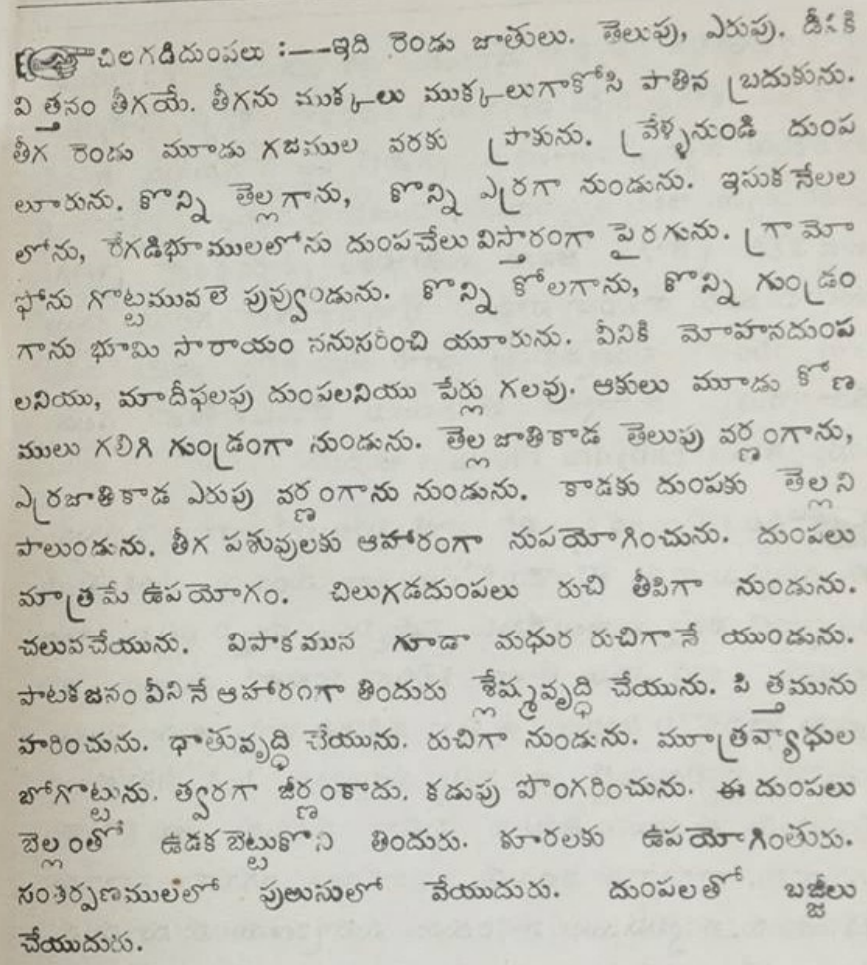 చిలగడదుంపలు :—ఇది రెండు జాతులు. తెలుపు, ఎరుపు. దీనికి
విత్తనం తీగయే. తీగను ముక్కలు ముక్కలుగాకోసి పాతిన బ్రదుకును.
తీగ రెండు మూడు గజముల వరకు ప్రాకును. వ్రేళ్ళనుండి దుంప
లూరును. కొన్ని తెల్లగాను, కొన్ని ఎర్రగా నుండును. ఇసుక నేలల
లోను, రేగడిభూములలోను దుంపచేలు విస్తారంగా పైరగును. గ్రామో
ఫోను గొట్టమువలె పువ్వుండును. కొన్ని కోలగాను, కొన్ని గుండ్రం
గాను భూమి సారాయం ననుసరించి యూరును. వీనికి మోహనదుంప
లనియు, మాదీఫలపు దుంపలనియు పేర్లు గలవు. ఆకులు మూడు కోణ
ములు గలిగి గుండ్రంగా నుండును. తెల్లజాతికాడ తెలుపు వర్ణంగాను,
ఎర్రజాతికాడ ఎరుపు వర్ణంగాను నుండును. కాడకు దుంపకు తెల్లని
పాలుండును. తీగ పశువులకు ఆహారంగా నుపయోగించును. దుంపలు
మాత్రమే ఉపయోగం. చిలుగడదుంపలు రుచి తీపిగా నుండును.
చలువచేయును. విపాకమున గూడా మధుర రుచిగానే యుండును.
పాటకజనం వీనినే ఆహారంగా తిందురు శ్లేష్మవృద్ధి చేయును. పిత్తమును
హరించును. ధాతువృద్ధి చేయును. రుచిగా నుండును. మూత్రవ్యాధుల
బోగొట్టును. త్వరగా జీర్ణంకాదు. కడుపు పొంగరించును. ఈ దుంపలు
బెల్లంతో ఉడకబెట్టుకొని తిందురు. కూరలకు ఉపయోగింతురు.
సంతర్పణములలో పులుసులో వేయుదురు. దుంపలతో బజ్జీలు
చేయుదురు.